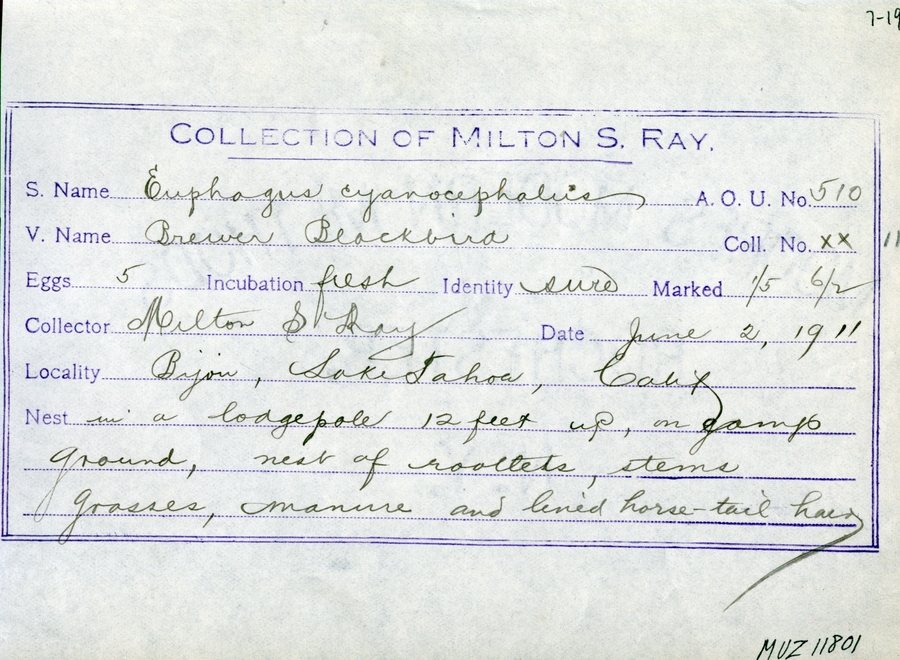 7-19
COLLECTION OF MILTON S. RAY.
S. Name Euphagus cyanocephalus A. O. U. No. 510
V. Name Brewer Blackbird Coll. No. xx
Eggs 5 Incubation fresh Identity sure Marked 1/5 6/2
Collector Milton S Ray Date June 2, 1911
Locality Bijou, Lake Tahoe, Calif
Nest in a lodgepole 12 feet up, on camp
ground, nest of rootlets, stems
grasses, manure and lined horse-tail hair
MUZ 11801